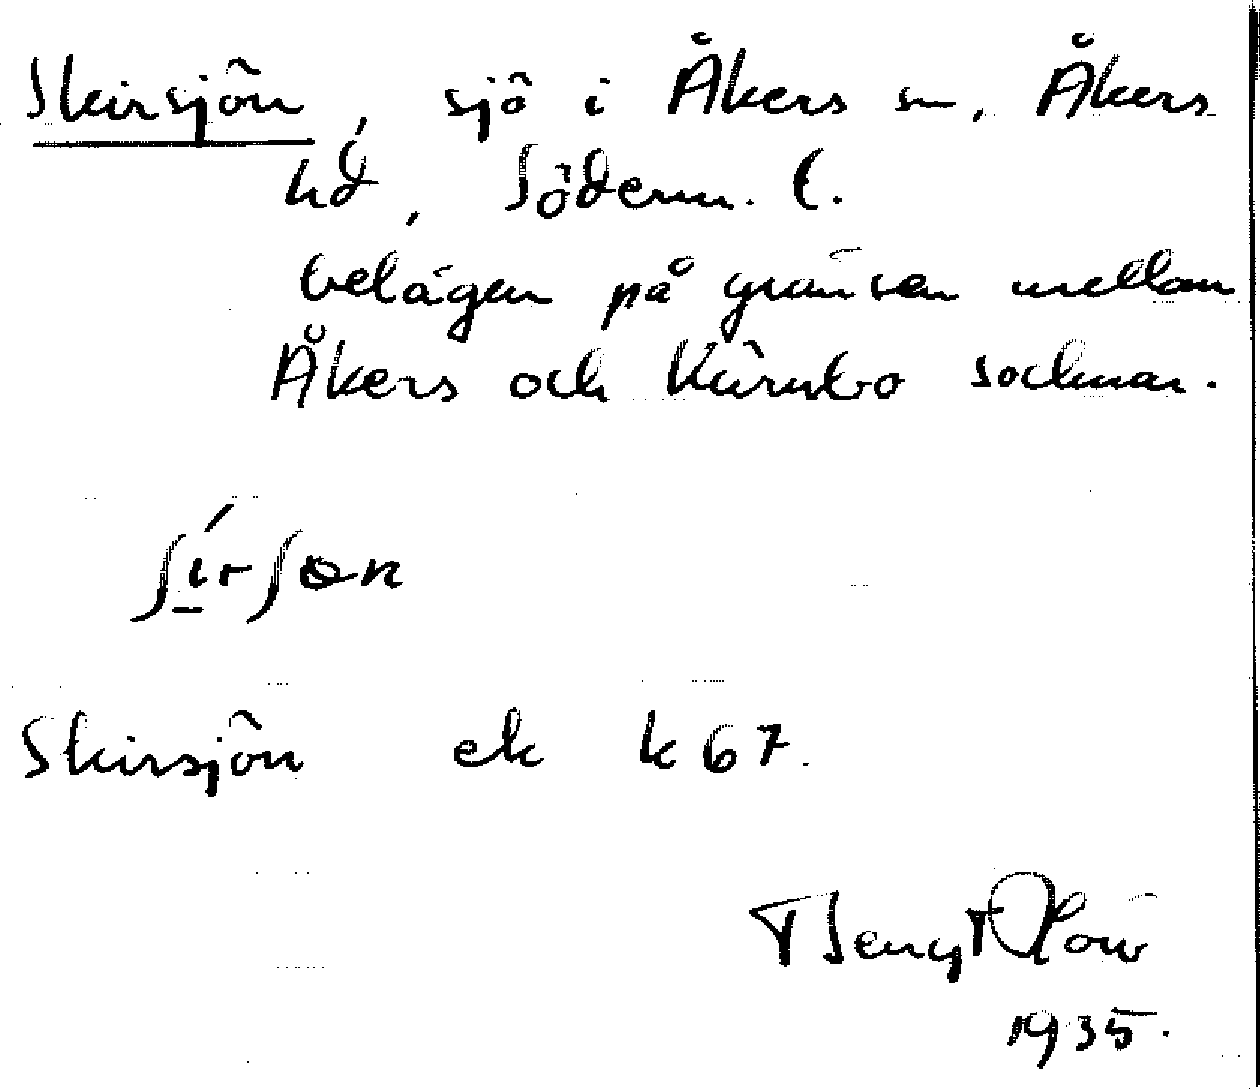 Skirsjön, sjö i Åkers sn, Åkers
hd, Söderm. l.
belägen på gränsen mellan
Åkers och Kärnbo socknar.
ʃí̱rʃɵn
Skirsjön ek k 67.
Bengt
1935.